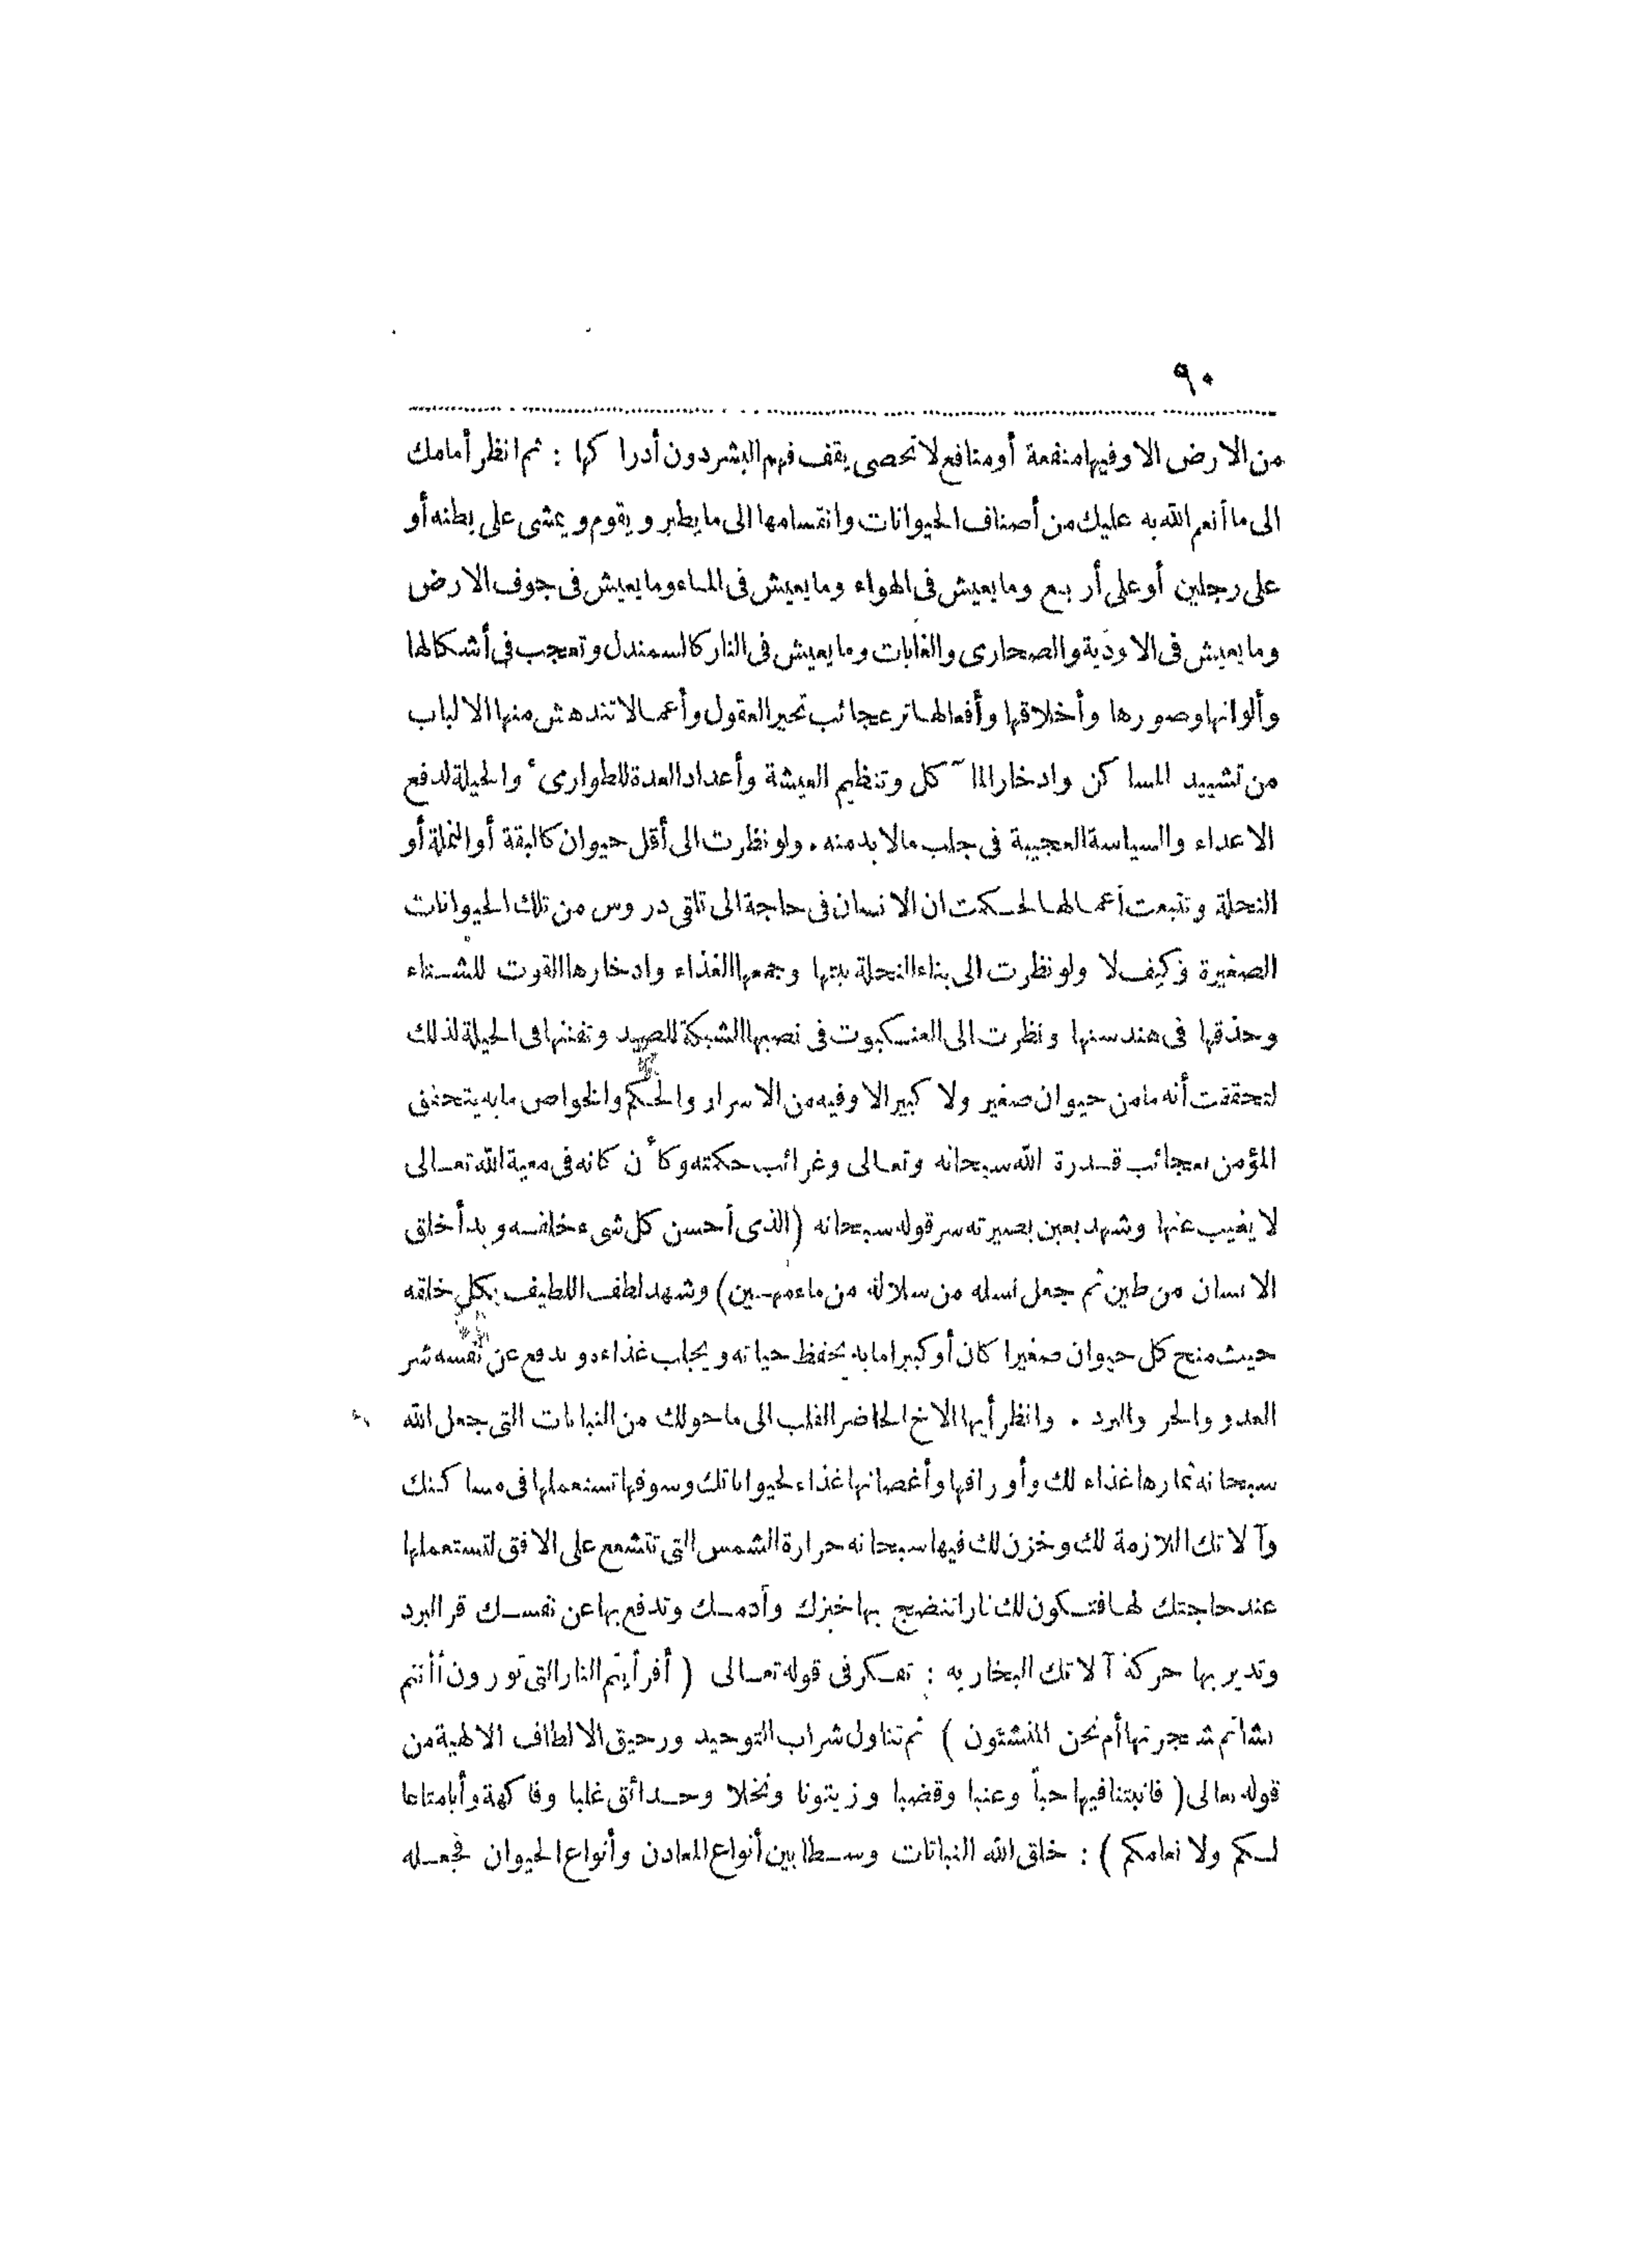 ٩٠
من الارض الا وفيها منفعة أو منافع لا تحصى يقف فهم البشر دون أدراكها : ثم انظر أمامك
الى ما أنعم الله به عليك من أصناف الحيوانات وانقسامها الى ما يطير ويقوم ويمشى على بطنه أو
على رجلين أو على أربع وما يعيش فى الهواء وما يعيش فى الماء وما يعيش فى جوف الارض
وما يعيش فى الاودية والصحارى والغابات وما يعيش فى النار كالسمندل وتعجب فى أشكالها
وألوانها وصورها وأخلاقها وأفعالها تر عجائب تحير العقول وأعمالا تندهش منها الالباب
من تشييد المساكن وادخار المآكل وتنظيم العيشة وأعداد العدة للطوارىء والحيلة لدفع
الاعداء والسياسة العجيبة فى جلب مالا بد منه . ولو نظرت الى أقل حيوان كالبقة أو النملة أو
النحلة وتتبعت أعمالها لحكمت ان الانسان فى حاجة الى تلقى دروس من تلك الحيوانات
الصغيرة وكيف لا ولو نظرت الى بناء النحلة بيتها وجمعها الغذاء وادخارها القوت للشتاء
وحذقها فى هندستها ونظرت الى العنكبوت فى نصبها الشبكة للصيد وتفننها فى الحيلة لذلك
لتحققت أنه ما من حيوان صغير ولا كبير الا وفيه من الاسرار والحكم والخواص ما به يتحقق
المؤمن بعجائب قدرة الله سبحانه وتعالى وغرائب حكمته وكأن كانه فى معية الله تعالى
لا يغيب عنها وشهد بعين بصيرته سر قوله سبحانه (الذى أحسن كل شىء خلقه وبدأ خلق
الانسان من طين ثم جعل نسله من سلالة من ماء مهين) وشهد لطف اللطيف بكل خلقه
حيث منح كل حيوان صغيرا كان أو كبيرا ما به يحفظ حياته ويجلب غذاءه ويدفع عن نفسه شر
العدو والحر والبرد . وانظر أيها الاخ الحاضر القلب الى ما حولك من النباتات التى جعل الله
سبحانه ثمارها غذاء لك وأوراقها وأغصانها غذاء لحيواناتك وسوقها تستعملها فى مساكنك
وآلاتك اللازمة لك وخزن لك فيها سبحانه حرارة الشمس التى تتشعع على الافق لتستعملها
عند حاجتك لها فتكون لك نارا تنضج بها خبزك وأدمك وتدفع بها عن نفسك قر البرد
وتدير بها حركة آلاتك البخاريه : تفكر فى قوله تعالى ( أفرأيتم النار التى تورون أأنتم
أنشاتم شجرتها أم نحن المنشئون ) ثم تناول شراب التوحيد ورحيق الالطاف الالهية من
قوله تعالى ( فانبتنا فيها حباً وعنبا وقضبا وزيتونا ونخلا وحدائق غلبا وفاكهة وأبا متاعا
لكم ولانعامكم ) : خلق الله النباتات وسطا بين أنواع المعادن وأنواع الحيوان فجعله